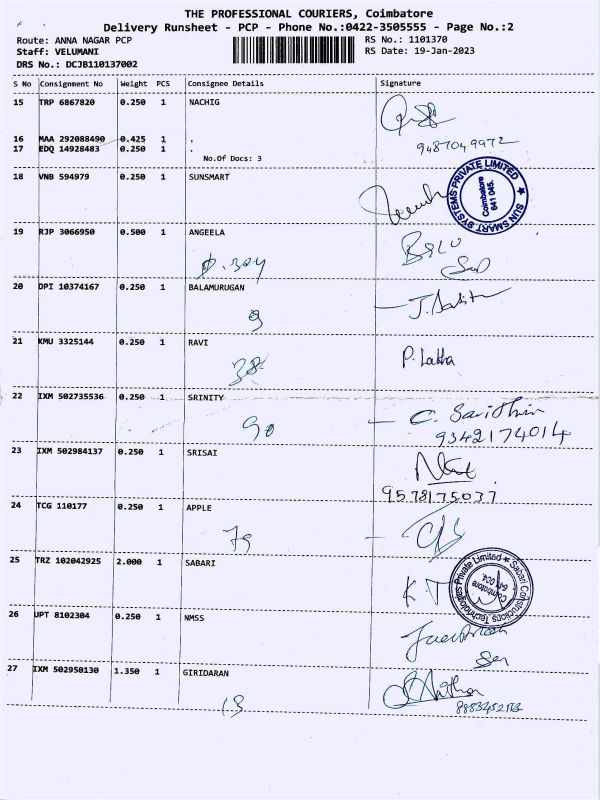 THE PROFESSIONAL COURIERS, Coimbatore
Delivery Runsheet - PCP - Phone No.:0422-3505555 - Page No.:2
Route: ANNA NAGAR PCP RS No.: 1101370
Staff: VELUMANI RS Date: 19-Jan-2023
DRS No.: DCJB110137002
S No Consignment No Weight PCS Consignee Details Signature
15 TRP 6867820 0.250 1 NACHIG
16 MAA 292088490 0.425 1 .
17 EDQ 14928483 0.250 1 . 9487049972
No.Of Docs: 3
18 VNB 594979 0.250 1 SUNSMART
SUN SMART SYSTEMS PRIVATE LIMITED
Coimbatore
641 045.
19 RJP 3066950 0.500 1 ANGEELA
20 DPI 10374167 0.250 1 BALAMURUGAN
9
21 KMU 3325144 0.250 1 RAVI
P. Latha
38
22 IXM 502735536 0.250 1 SRINITY
90
9342174014
23 IXM 502984137 0.250 1 SRISAI
9578175037
24 TCG 110177 0.250 1 APPLE
79
25 TRZ 102042925 2.000 1 SABARI
Sabari Constructions Technologies Private Limited
Coimbatore
641 004.
26 UPT 8102304 0.250 1 NMSS
27 IXM 502950130 1.350 1 GIRIDARAN
13